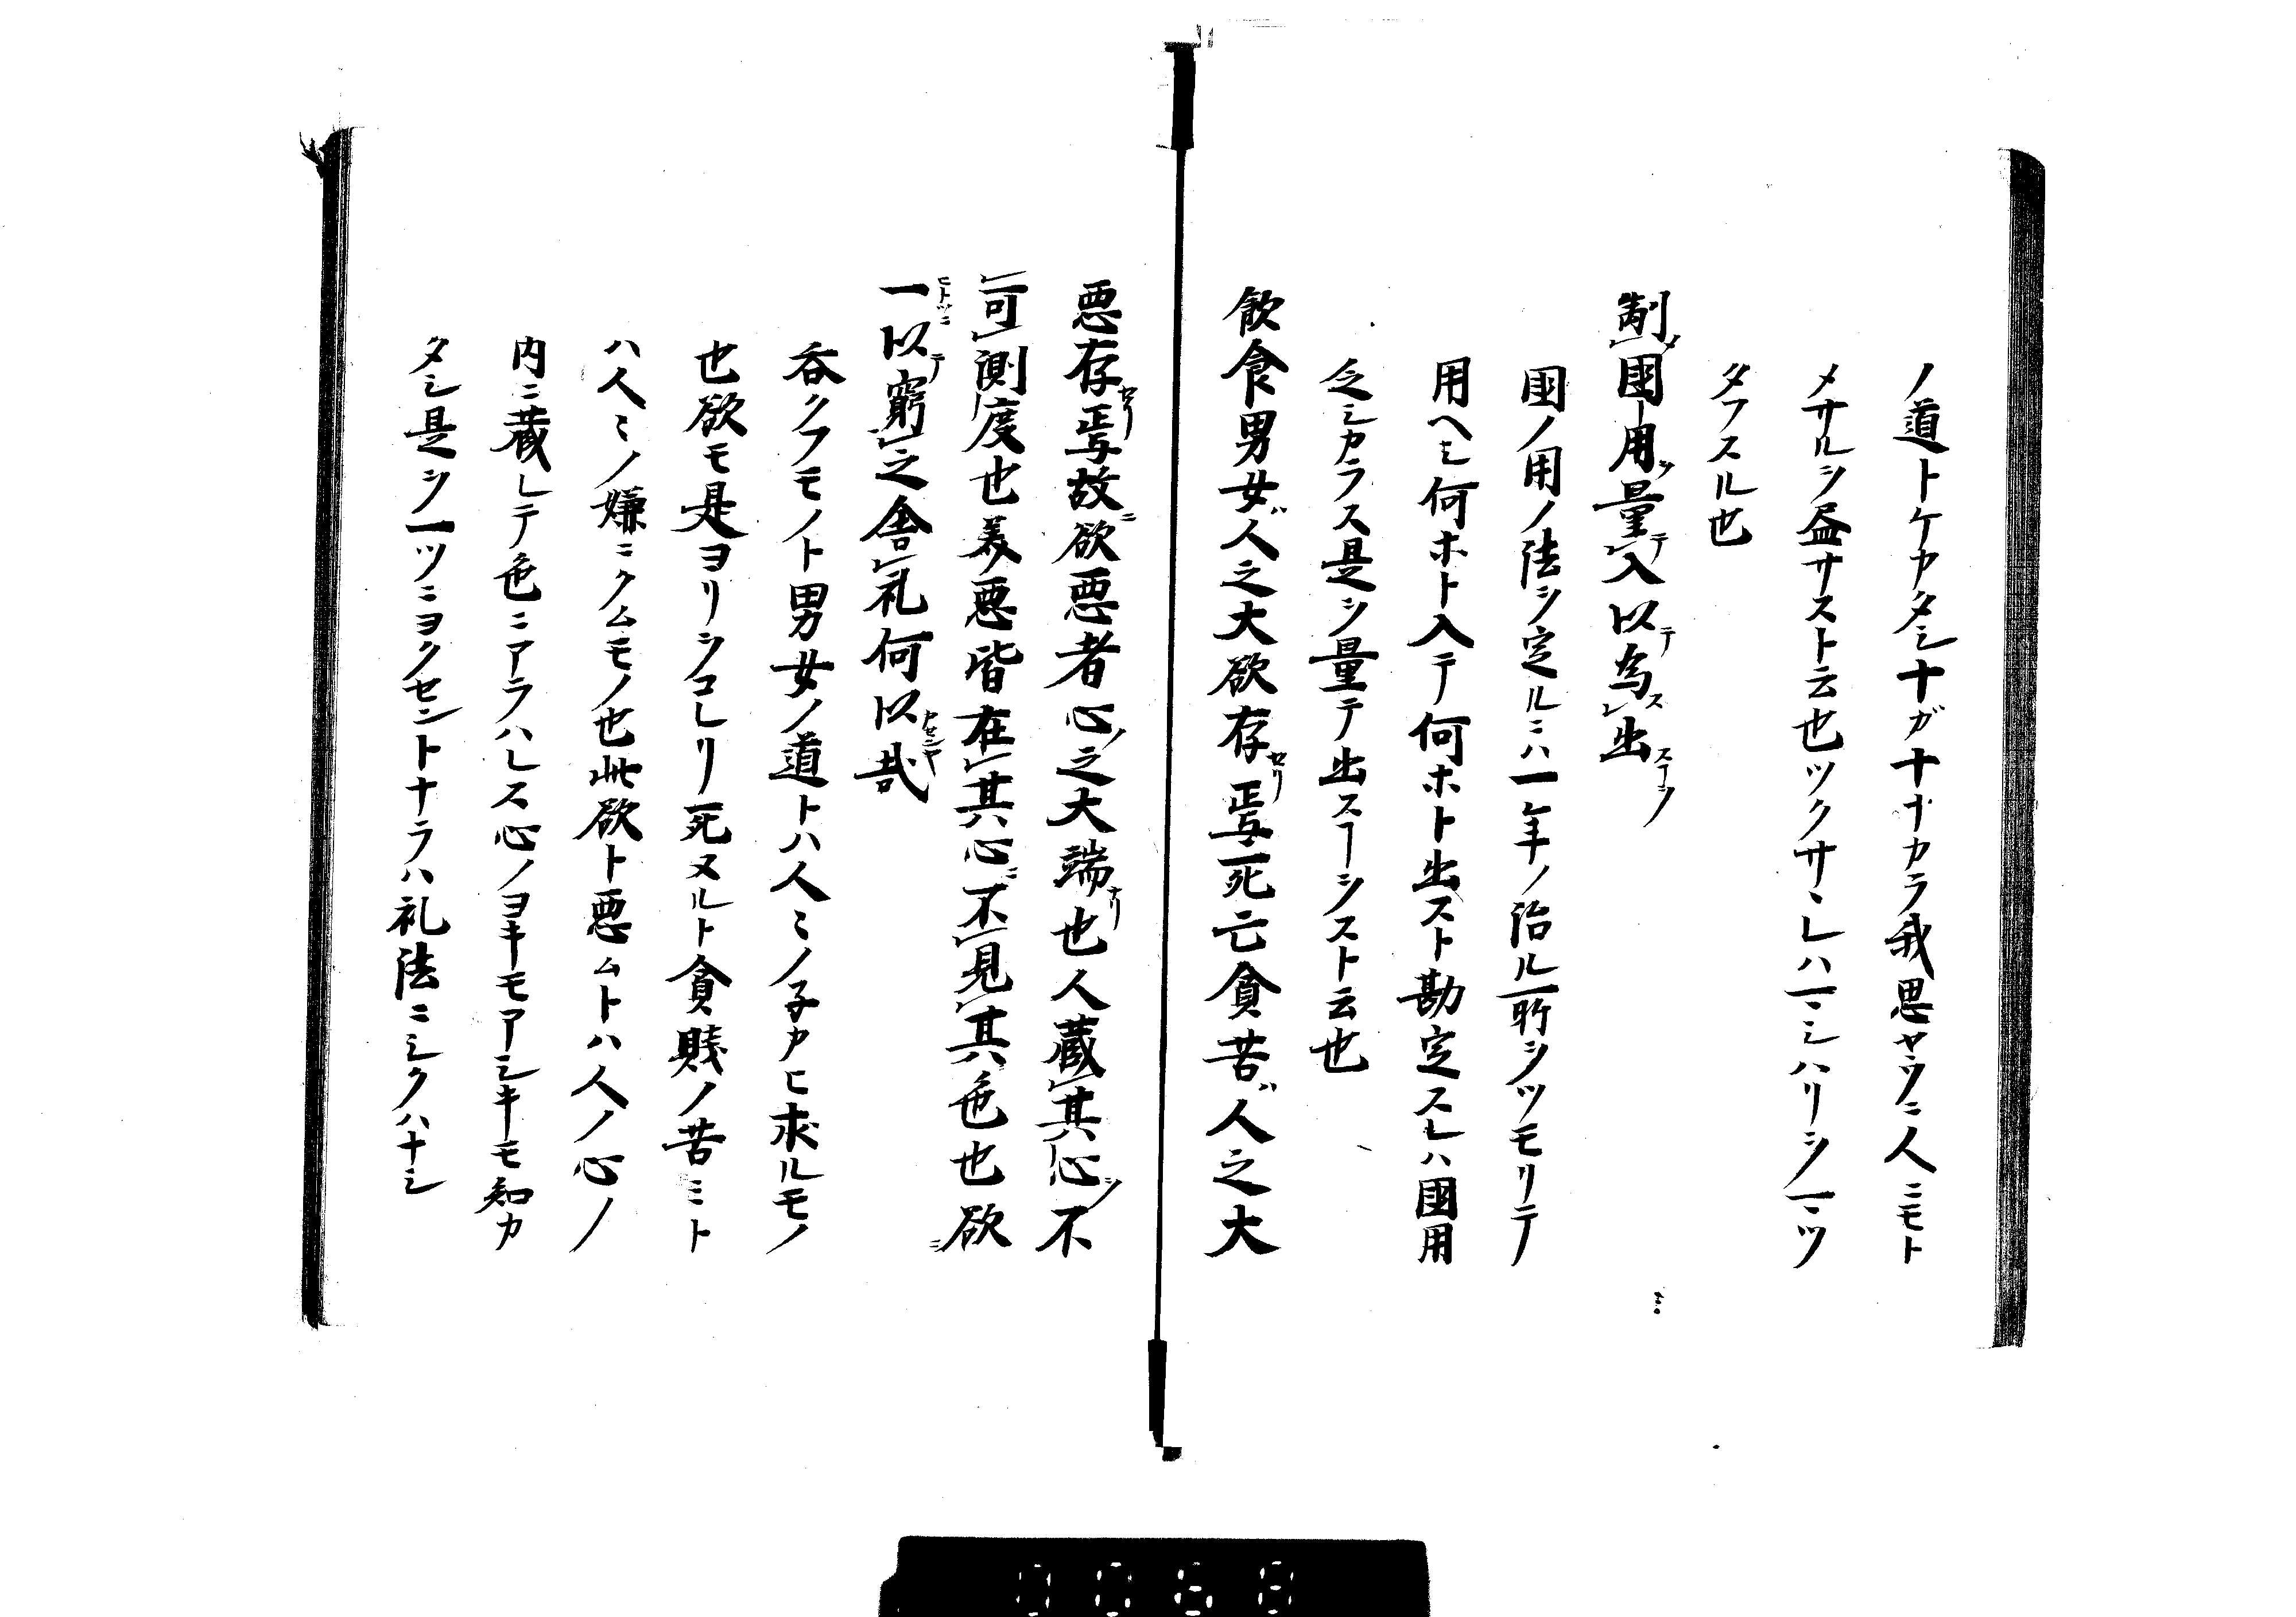 ノ道トケカタシ十ガ十ナカラ我思ヤウニ人ニモト
メサルヲ尽サスト云也ツクサヽレハ一ミハリヲ一ツ
タフスル也
制國用量入以為出
國ノ用ノ法ヲ定ルニハ一年ノ治ル所ヲツモリテ
用ヘシ何ホト入テ何ホト出スト勘定スレハ國用
乏シカラス是ヲ量テ出スヿヲスト云也
飲食男女人之大欲存焉死亡貪苦人之大
悪存焉故欲悪者心之大端也人蔵其心不
可測度也美悪皆在其心不見其色也欲
一以窮之舎礼何以哉
呑クフモノト男女ノ道トハ人ミノ子カヒ求ルモノ
也欲モ是ヨリヲコレリ死ヌルト貪賎ノ苦ミト
ハ人ミノ嫌ニクムモノ也此欲ト悪ムトハ人ノ心ノ
内ニ蔵レテ色ニアラハレス心ノヨキモアシキモ知カ
タシ是ヲ一ツニヨクセントナラハ礼法ニシクハナシ